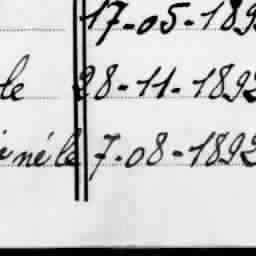 17-05-189
le 28-11-1892
né le 7-08-1892